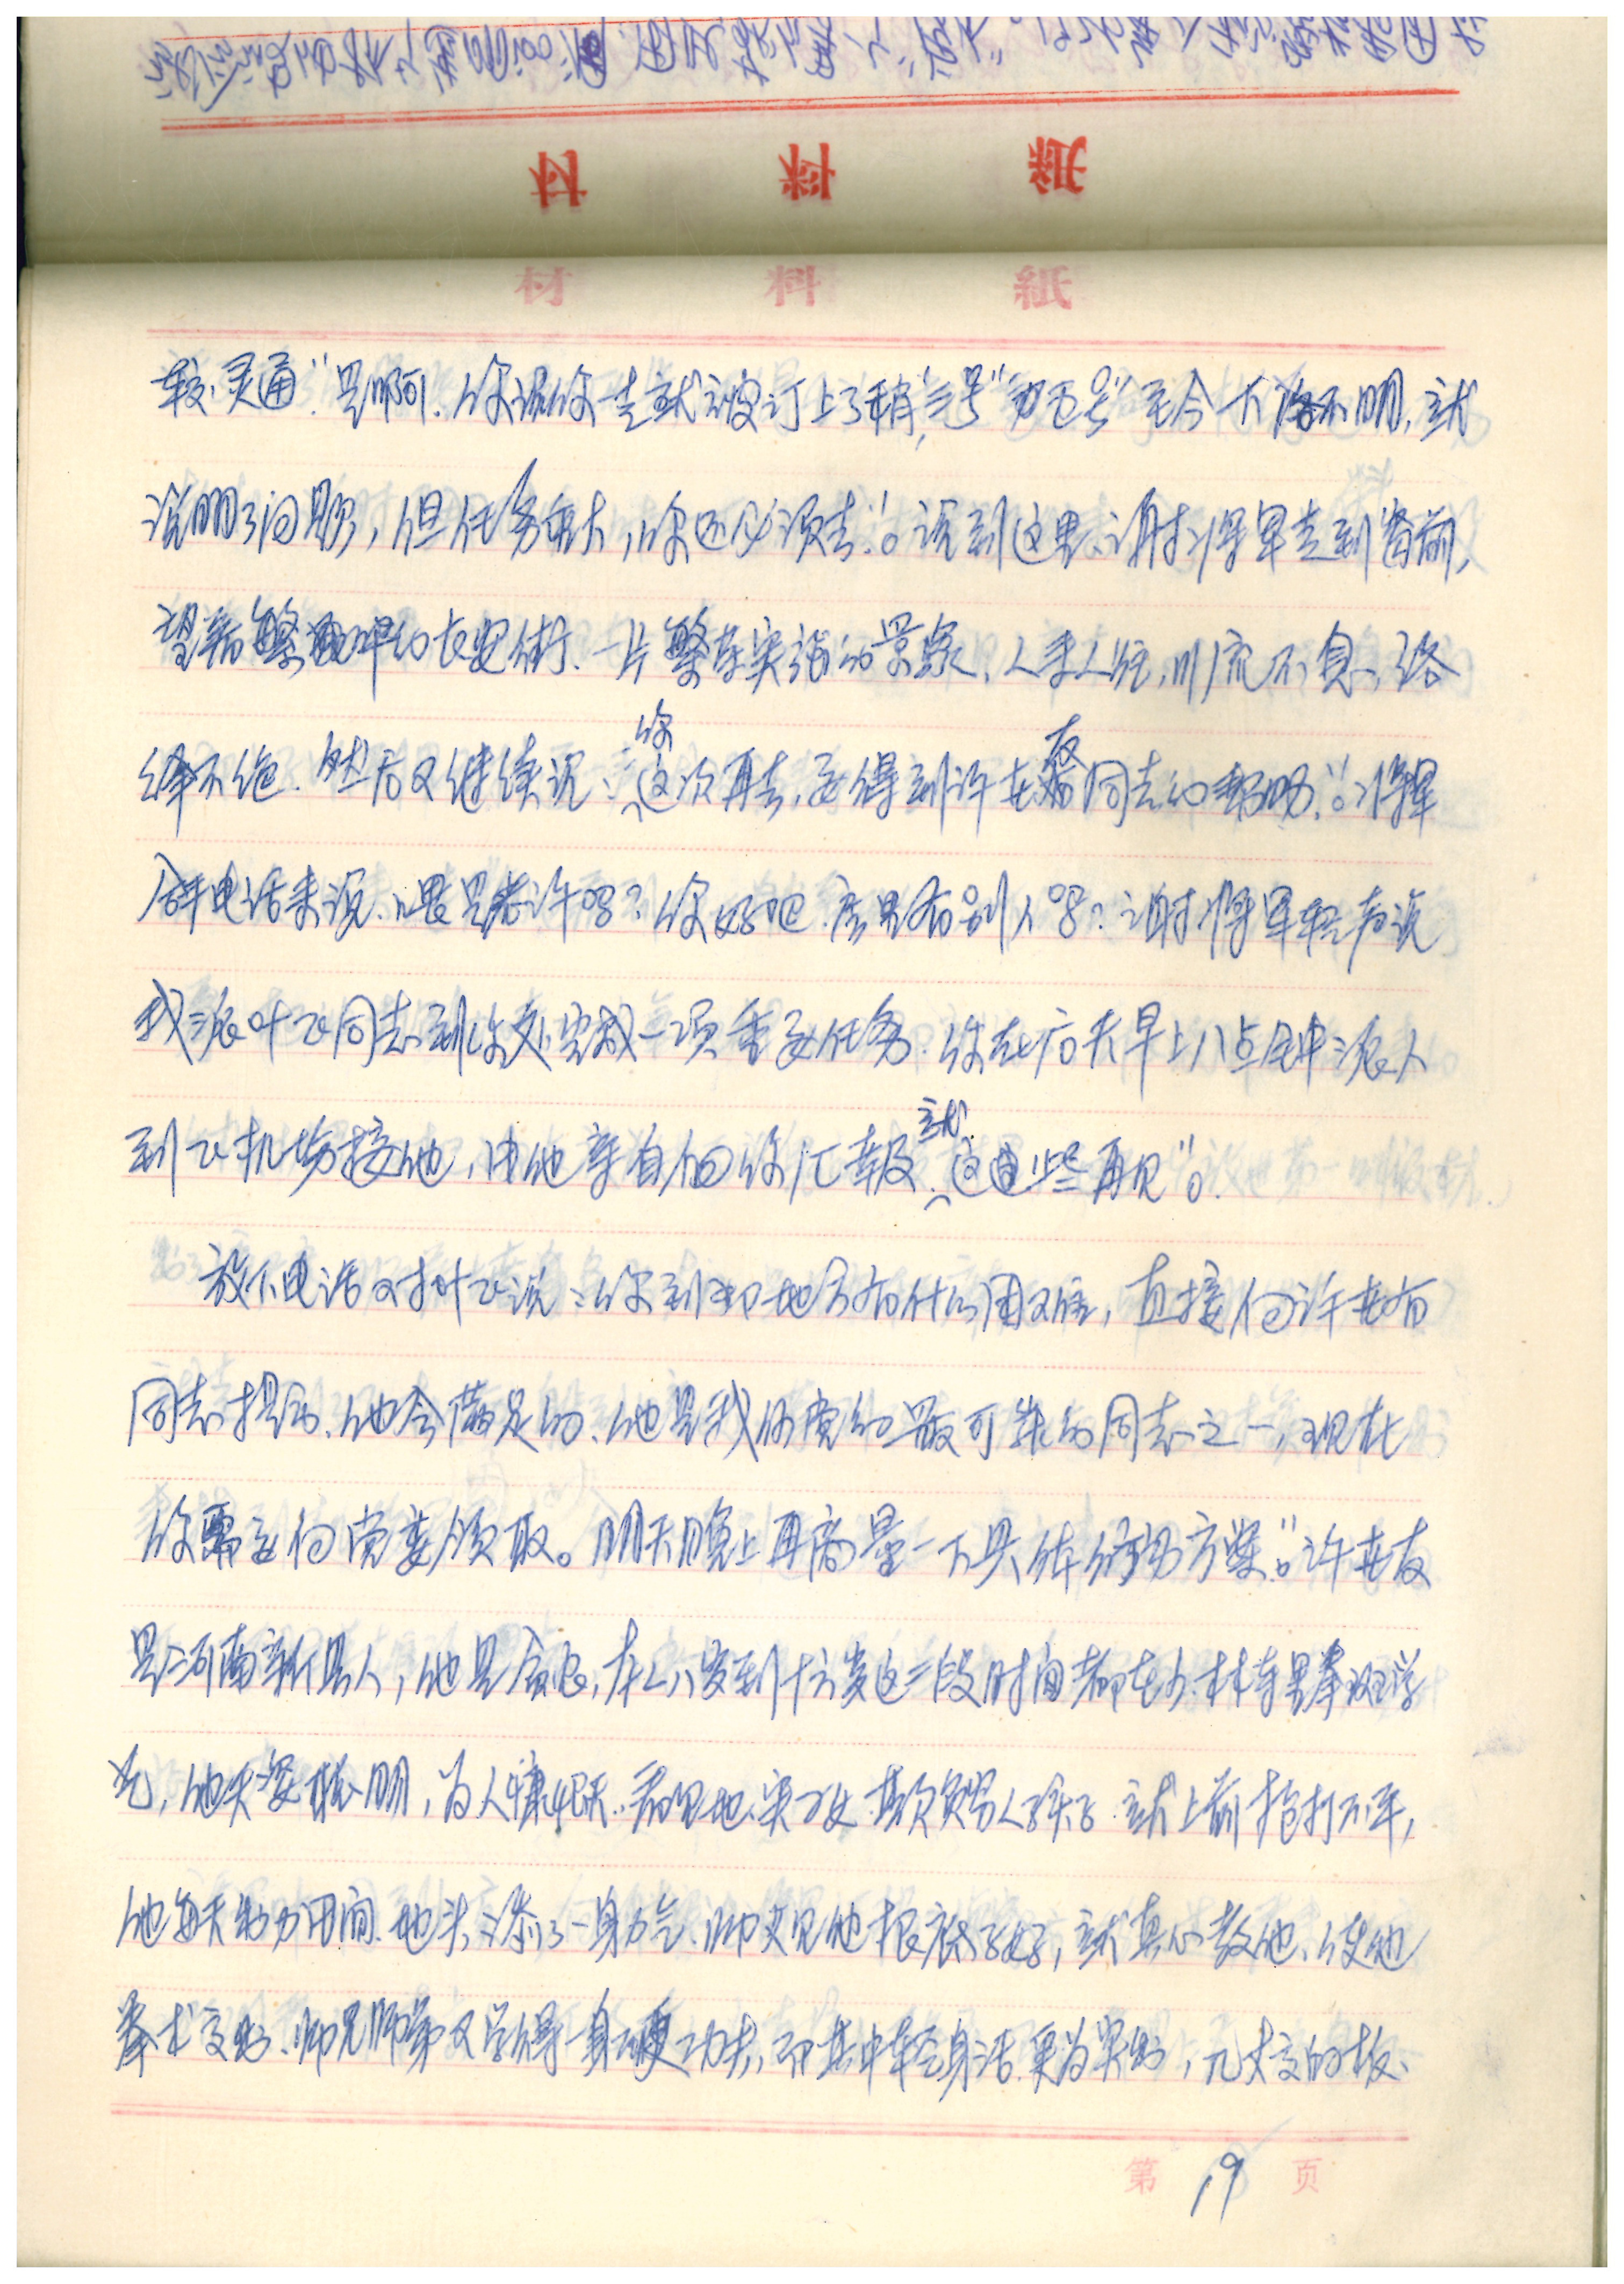 材料紙
材料紙
较灵通"是啊.你说你一去就被订上了稍,"三号""九五号"至今下落不明,就
说明了问题,但任务重大,你还必须去"。说到这里,谢将军走到窗前,
望着繁华的长安街.一片繁荣的景象,人来人往,川流不息,络
绎不绝.然后又继续说:"你这次再去,要得到许世友同志的帮助"。将军
拿起电话来说."喂是老许吗?你好吧.房里有别人吗?谢将军轻声说
我派叶飞同志到你处完成一项重要任务.你在后天早上八点钟派人
到飞机场接他,由他亲自向你汇报.就这些再见"。
放下电话又对叶飞说:"你到那地方有什么困难,直接向许世友
同志提出.他会满足的.他是我们党的最可靠的同志之一,现在
你需要向党委领取。明天晚上再商量一下具体行动方案"。许世友
是河南新县人,他是,在八岁到十六岁这一段时间都在少林寺里拳班学
艺,他天资聪明,为人慷慨.看见地主子女欺负穷人孩子.就上前抱打不平,
他每天努力用功.也添了一身力气.师父见他根底子好,就真心教他、使他
拳术变出.师兄师弟又学得一身硬功夫,而其中轻身法更为突出,几丈高的板、
第 19 页